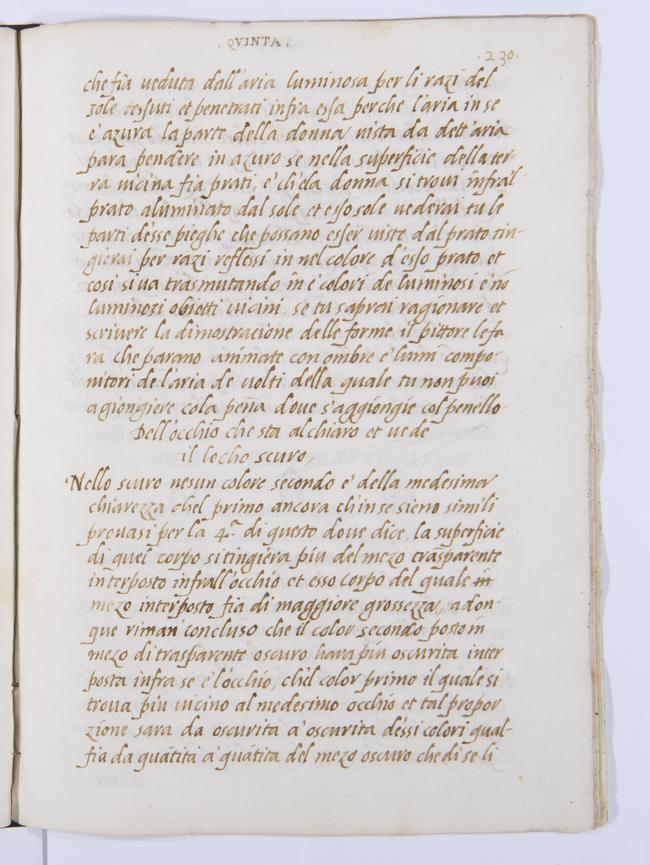 . QVINTA .
. 230 .
che fia veduta dall'aria luminosa per li razi del
sole tessuti et penetrati infra essa perche l'aria in se
e' azura la parte della donna vista da dett'aria
para pendere in azuro se nella superficie della ter-
ra vicina fia prati, e' ch'ela donna si trovi infral'
prato aluminato dal sole et esso sole vederai tu le
parti d'esse pieghe che possano esser viste dal prato tin-
gierai per razi reflessi in nel colore d'esso prato et
cosi si va trasmutando in e' colori de luminosi e nō
luminosi obietti vicini, se tu saprai ragionare et
scrivere la dimostracione delle forme il pittore le fa-
ra che parano animate con ombre e' lumi compo-
nitori de l'aria de volti della quale tu non puoi
agiongiere co la peña dove s'aggiongie col penello
Dell'occhio che sta al chiaro et vede
il locho scuro,
Nello scuro nesun colore secondo e' della medesima
chiarezza chel primo ancora ch'in se sieno simili
provasi per la 4.ª di questo dove dice, la superficie
di quel corpo si tingiera piu del mezo trasparente
interposto infrall'occhio et esso corpo del quale in
mezo interposto fia di maggiore grossezza, adon-
que riman' concluso che il color secondo posto in
mezo di trasparente oscuro hara piu oscurita inter
posta infra se e' l'occhio, ch'el color primo il quale si
trova piu vicino al medesimo occhio et tal propor
zione sara da oscurita a' oscurita d'essi colori qual-
fia da quātita a' quātita del mezo oscuro che di se li